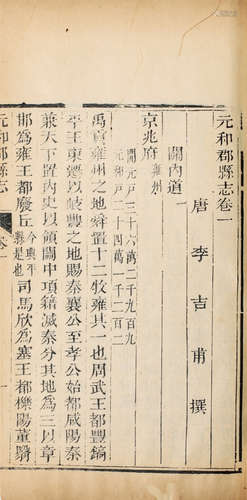 元和郡縣志卷一
唐 李吉甫 撰
關內道一
京兆府 雍州
開元戶三十六萬二千九百九
元和戶二十四萬一千二百二
禹貢雍州之地舜置十二牧雍其一也周武王都豐鎬
平王東遷以岐豐之地賜秦襄公至孝公始都咸陽秦
兼天下置內史以領關中項籍滅秦分其地為三以章
邯為雍王都廢丘今興平縣是也司馬欣為塞王都櫟陽董翳